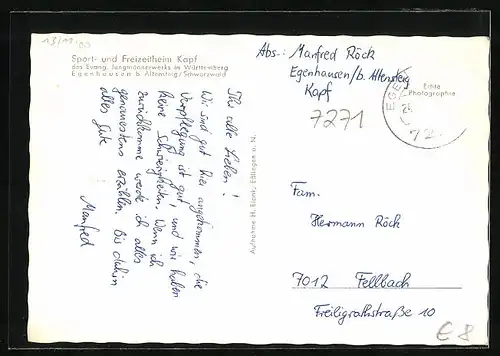 13/19'00
Sport- und Freizeitheim Kapf
des Evang. Jungmännerwerks in Württemberg
Egenhausen b Altensteig/Schwarzwald
Ihr alle Lieben!
Wir sind gut hier angekommen, die
Verpflegung ist gut, und wir haben
keine Schwierigkeiten. Wenn ich
zurückkomme werde ich alles
genauestens erzählen. Bis dahin
alles Gute
Manfred
Aufnahme H. Bionk, Eßlingen a. N.
Abs.: Manfred Röck
Egenhausen/b. Altensteig
Kapf
7271
Echte
Photographie
EGE
72
Fam.
Hermann Röck
7012 Fellbach
Freiligrathstraße 10
€ 8